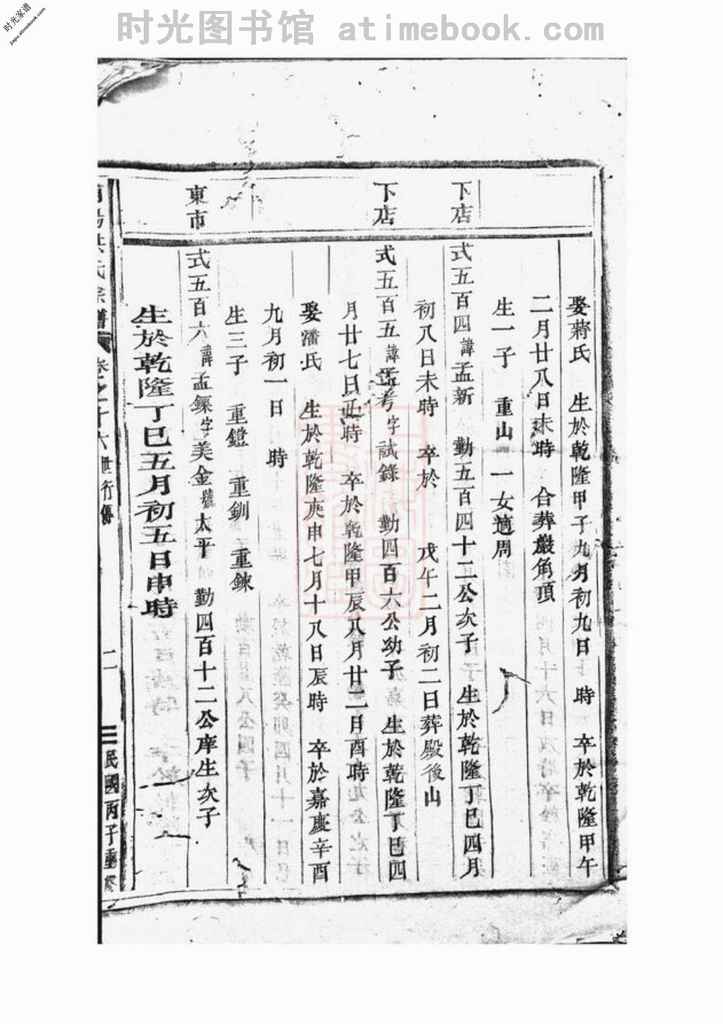 时光图书馆 atimebook.com
时光家谱
娶蔣氏 生於乾隆甲子九月初九日 時 卒於乾隆甲午
二月廿八日未時 合葬巖角頂
生一子 重山 一女適周
下店
式五百四諱孟新 勤五百四十二公次子 生於乾隆丁巳四月
初八日未時 卒於 戊午二月初二日葬殿後山
下店
式五百五諱孟考字試錄 勤四百六公幼子 生於乾隆丁巳四
月廿七日 時 卒於乾隆甲辰八月廿二日酉時
娶潘氏 生於乾隆庚申七月十八日辰時 卒於嘉慶辛酉
九月初一日 時
生三子 重鐙 重釧 重鍊
東市
式五百六諱孟 字美金號太平 勤四百十二公庠生次子
生於乾隆丁巳五月初五日申時
洪氏宗譜 卷之十六 世行傳 二 民國丙子重